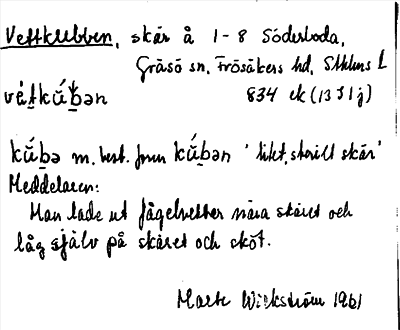 Vettkubben, skär å 1-8 Söderboda,
Gräsö sn, Frösåkers hd, Sthlms l
834 ek (13 I 1 j)
kǘbə m. best. form kǘbən ' skär'
Meddelaren:
Han lade ut fågelvettar nära skäret och
låg själv på skäret och sköt.
Märta Wickström 1961